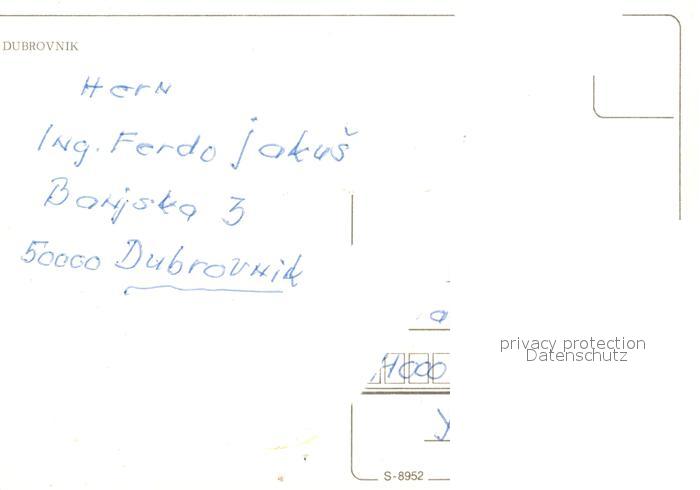 DUBROVNIK
Hern
Ing. Ferdo Jakuš
Banjska 3
50000 Dubrovnik
privacy protection
Datenschutz
S-8952